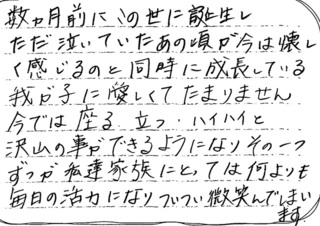 数ヵ月前にこの世に誕生し
ただ泣いていたあの頃が今は懐し
く感じるのと同時に成長している
我が子に愛しくてたまりません
今では座る・立つ・ハイハイと
沢山の事ができるようになりその一つ
ずつが私達家族にとっては何よりも
毎日の活力になりついつい微笑んでしまい
ます